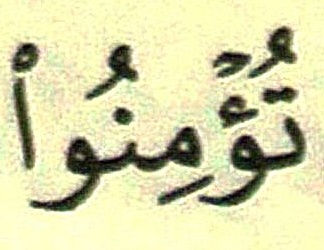 تُؤْمِنُوا۟